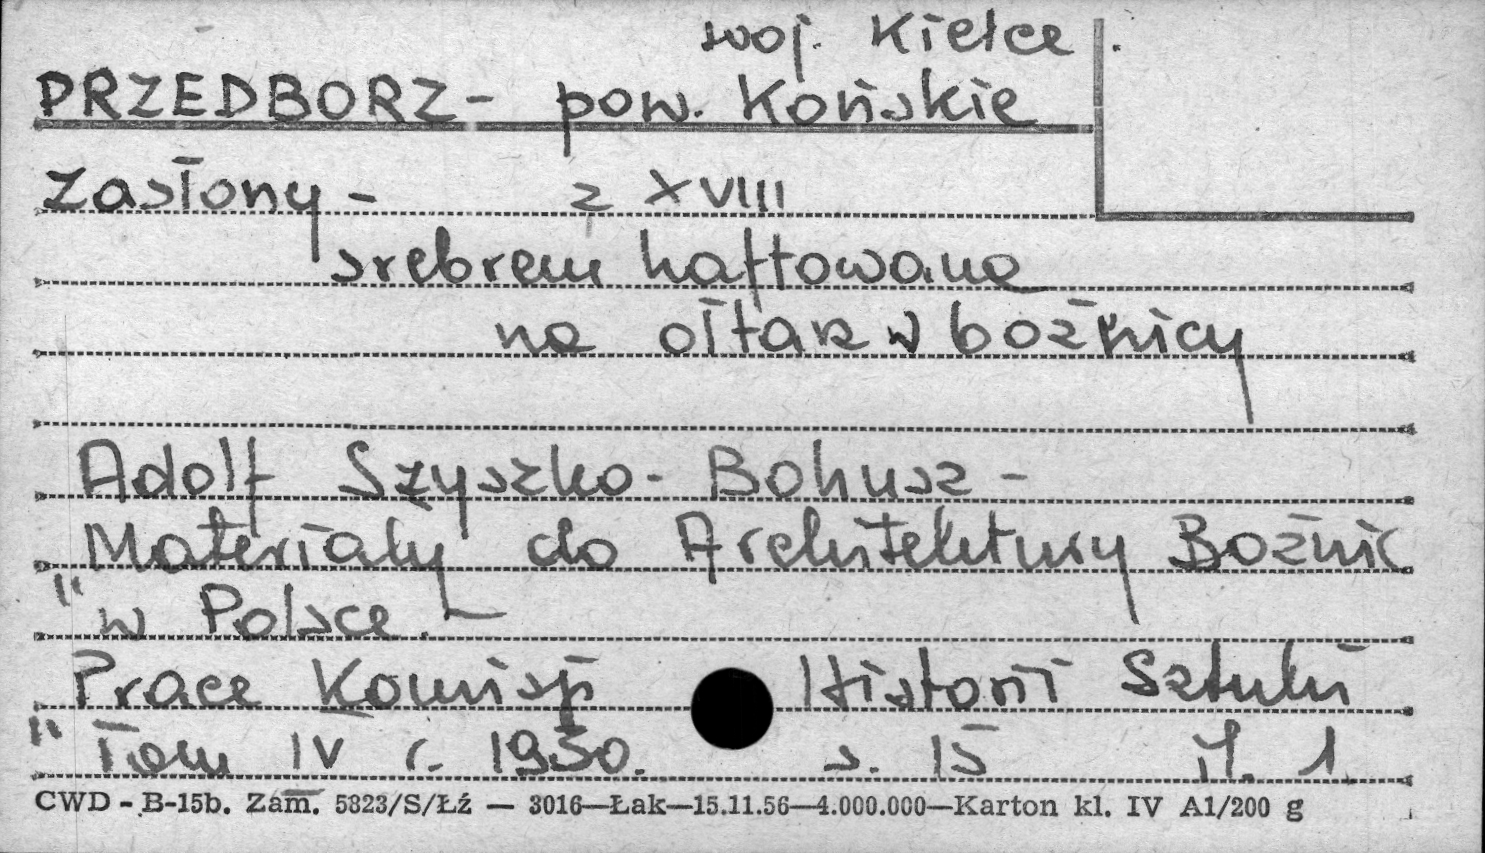 woj. Kielce.
PRZEDBORZ - pow. Końskie
Zasłony - z XVIII
srebrem haftowane
na ołtarz w bożnicy
Adolf Szyszko-Bohusz -
Materiały do Architektury Bożnic
" w Polsce. -
Prace Komisji Historii Sztuki
" Tom IV r. 1930. s. 15 il. 1.
CWD - B-15b. Zam. 5823/S/Łź — 3016—Łak—15.11.56—4.000.000—Karton kl. IV A1/200 g